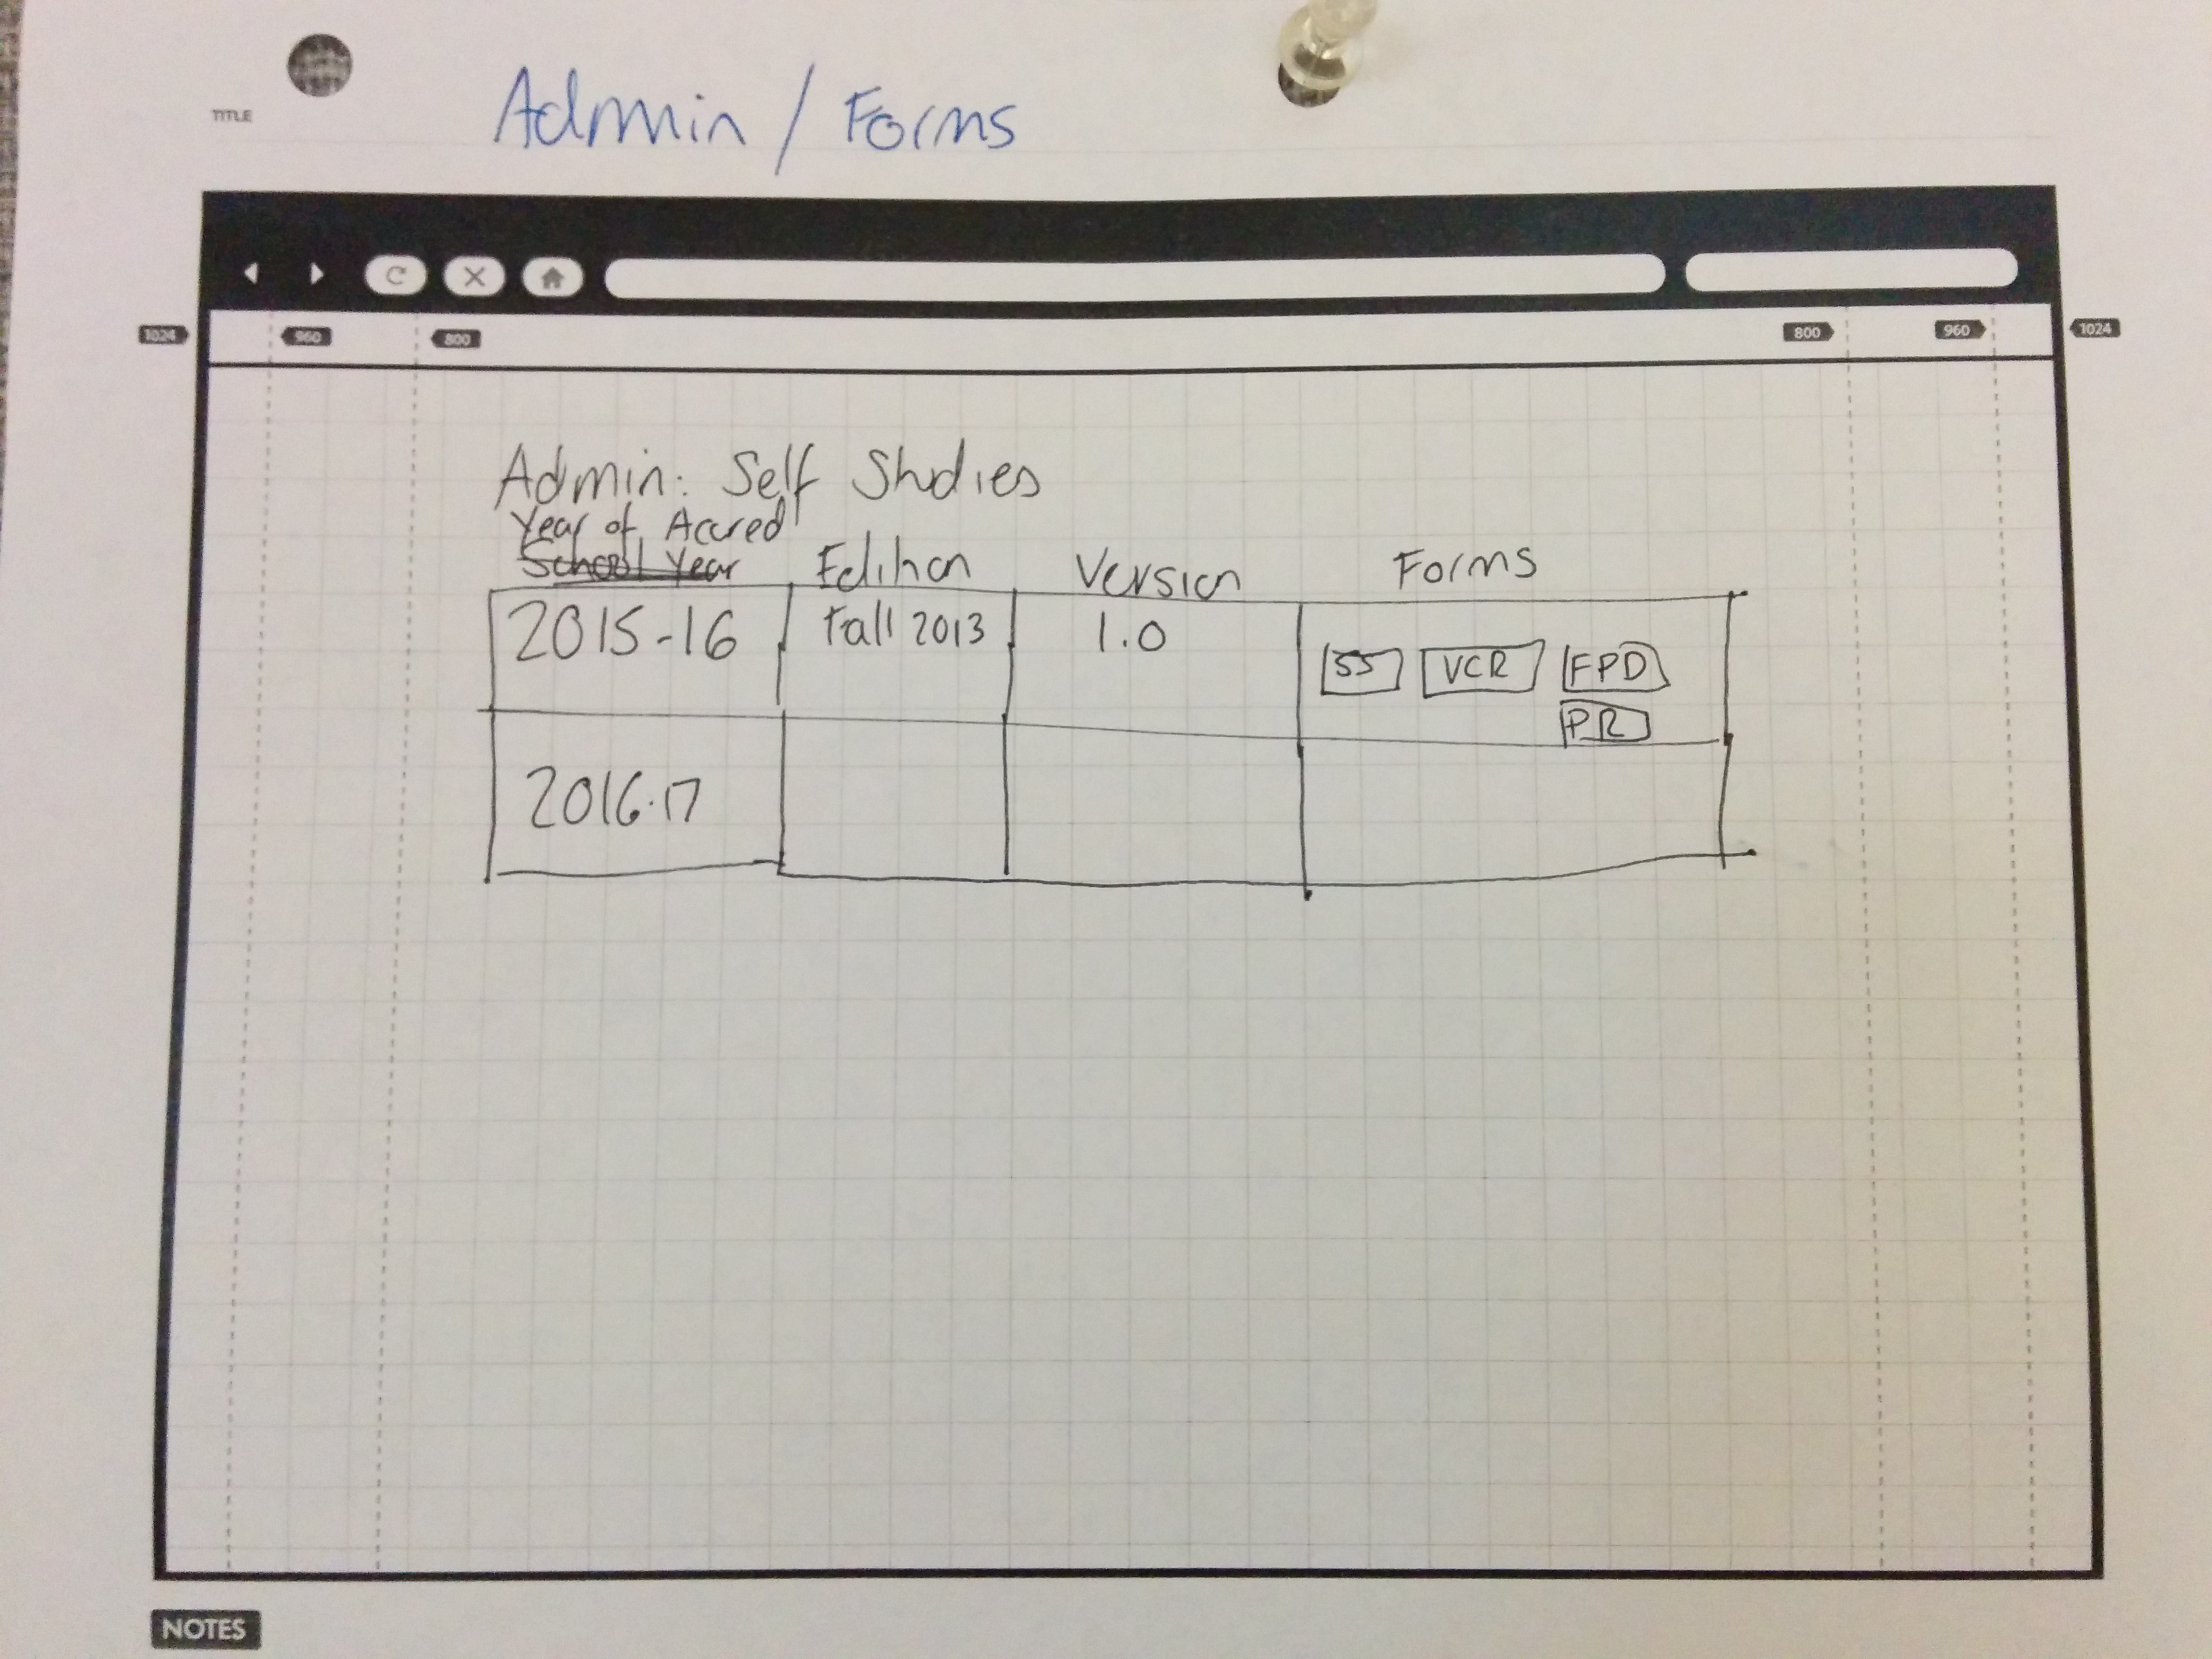 TITLE
Admin / Forms
1024 960 800 800 960 1024
Admin: Self Studies
Year of Accred
School Year Edition Version Forms
2015-16 Fall 2013 1.0 SS VCR FPD
PR
2016-17
NOTES